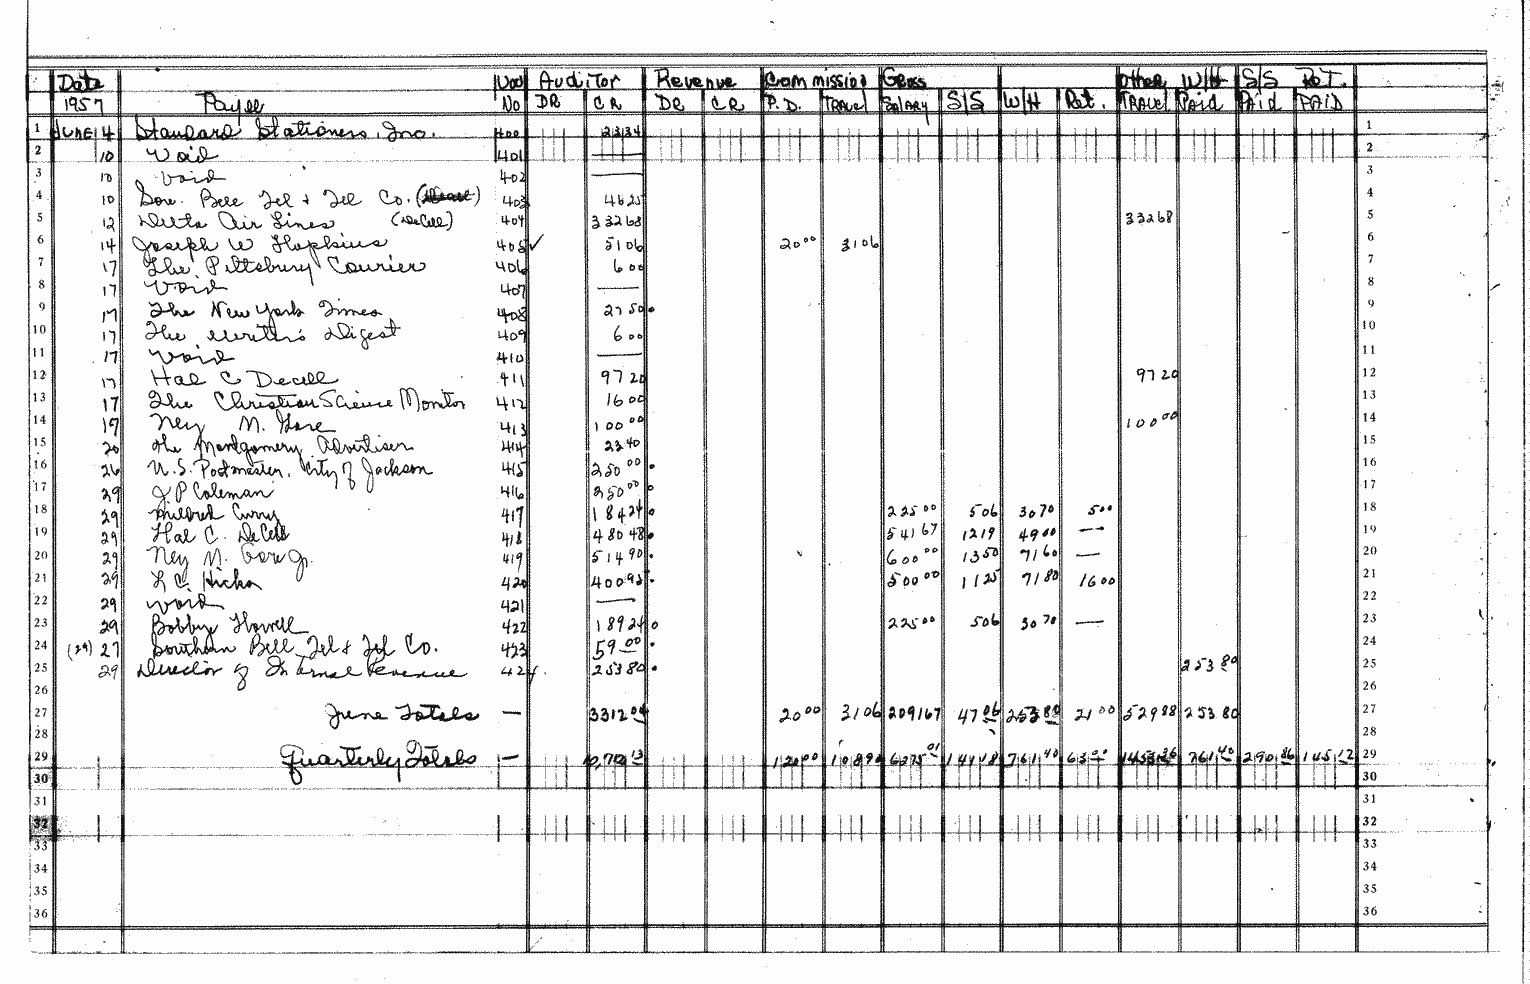 Date Vou Auditor Revenue Commission Gross Other W/H S/S Ret.
1957 Payee No DR CR DR CR P.D. TRAVEL SALARY S/S W/H Ret. TRAVEL Paid PAID PAID
1 JUNE 14 Standard Stationers, Inc. 400 2334 1
2 10 Void 401 — 2
3 10 Void 402 — 3
4 10 Sou. Bell Tel & Tel Co. 403 4625 4
5 12 Delta Air Lines (DeCell) 404 33268 33268 5
6 14 Joseph W Hopkins 405 ✓ 5106 20 00 3106 6
7 17 The Pittsburg Courier 406 6 00 7
8 17 Void 407 — 8
9 17 The New York Times 408 27 50 9
10 17 The Writer's Digest 409 6 00 10
11 17 Void 410 — 11
12 17 Hal C Decell 411 97 20 97 20 12
13 17 The Christian Science Monitor 412 16 00 13
14 19 Ney M. Gore 413 100 00 100 00 14
15 20 The Montgomery Advertiser 414 23 40 15
16 26 U.S. Postmaster, City of Jackson 415 250 00 16
17 29 J P Coleman 416 250 00 17
18 29 Mildred Curry 417 184 24 225 00 506 3070 500 18
19 29 Hal C. DeCell 418 480 48 541 67 1219 49 00 — 19
20 29 Ney M. Gore Jr. 419 514 90 600 00 1350 71 60 — 20
21 29 L C. Hicks 420 400 95 500 00 1125 71 80 16 00 21
22 29 Void 421 — 22
23 29 Bobby Howell 422 189 24 225 00 506 3070 — 23
24 (29) 27 Southern Bell Tel & Tel Co. 423 59 00 24
25 29 Director of Internal Revenue 424 253 80 253 80 25
26 26
27 June Totals — 3312 04 20 00 3106 2091 67 47 06 253 80 21 00 529 88 253 80 27
28 28
29 Quarterly Totals — 120 00 108 90 6275 01 141 18 761 40 63 00 1453 36 761 40 290 86 145 12 29
30 30
31 31
32 32
33 33
34 34
35 35
36 36